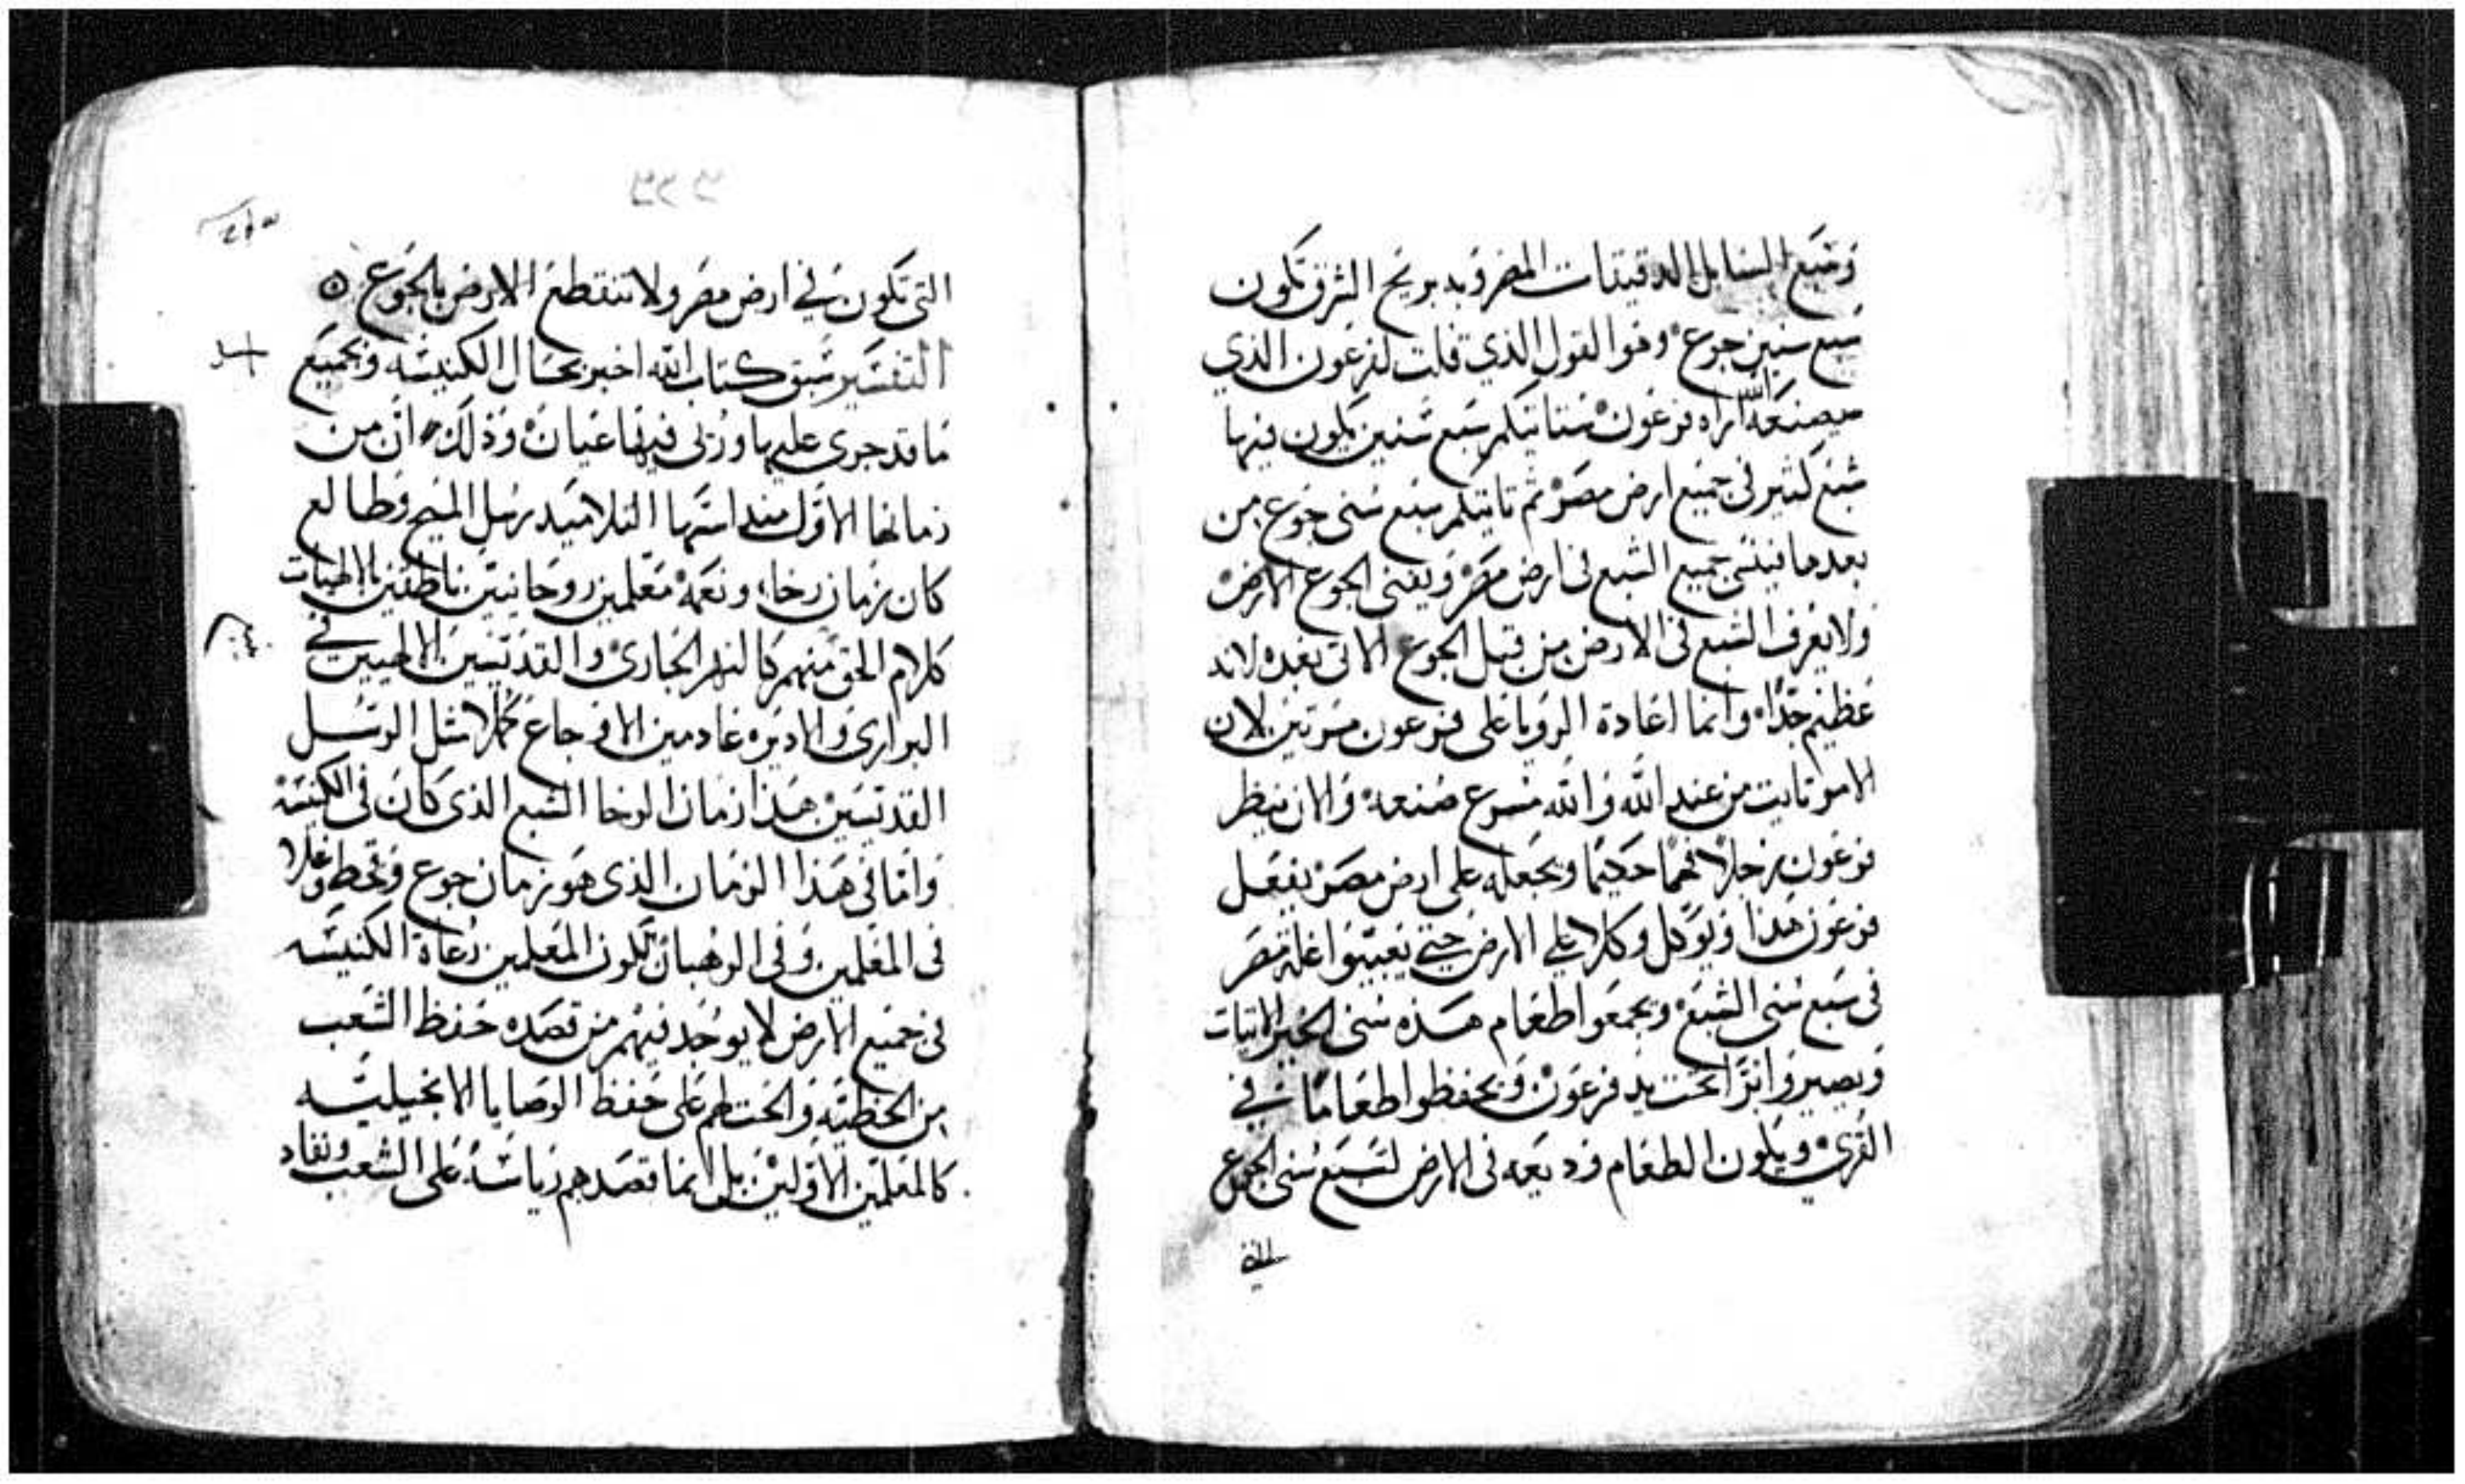 وسبع السنابل الدقيقات المضروبه بريح الشرق تكون
سبع سنين جوع وهو القول الذي قلت لفرعون الذي
سيصنعه الله اراه فرعون ستاتيكم سبع سنين يكون فيها
شبع كثير في جميع ارض مصر ثم تاتيكم سبع سني جوع من
بعدها فينسى جميع الشبع في ارض مصر ويفني الجوع الارض
ولا يعرف الشبع في الارض من قبل الجوع الاتي بعده لانه
عظيم جدا وانما اعادة الرويا على فرعون مرتين لان
الامر ثابت من عند الله والله مسرع صنعه والان ينظر
فرعون رجلا فهما حكيما ويجعله على ارض مصر يفعل
فرعون هذا ويوكل وكلا علي الارض حتي يعبيوا غلة مصر
في سبع سني الشبع ويجمعوا طعام هذه سني الخير الاتيات
ويصيروا بُرًّا تحت يد فرعون ويحفظوا طعاما في
القرى ويكون الطعام وديعه في الارض لسبع سني الجوع
التي
التي تكون في ارض مصر ولا تنقطع الارض بالجوع
التفسير سبق كتاب الله اخبر بحال الكنيسه وبجميع
ما قد جرى عليها ورُئى فيها عيان وذلك ان من
زمانها الاول منذ اسسها التلاميد رسل المسيح وطالع
كان زمان رخاء ونعمه معلمين روحانيين ناطقين بالالهيات
كلام الحق منهم كالنهر الجاري والقديسين الالهيين في
البراري والاديره عادمين الاوجاع كملا مثل الرسل
القديسين هذا زمان الرخا الشبع الذي كان في الكنيسه
واما في هذا الزمان الذي هو زمان جوع وقحط وغلا
في المعلمين وفي الرهبان تكون المعلمين رعاة الكنيسه
في جميع الارض لا يوجد فيهم من قصده حفظ الشعب
من الخطيه والحث لهم على حفظ الوصايا الانجيليه
كالمعلمين الاولين بل انما قصدهم رياسه على الشعب ونفاد